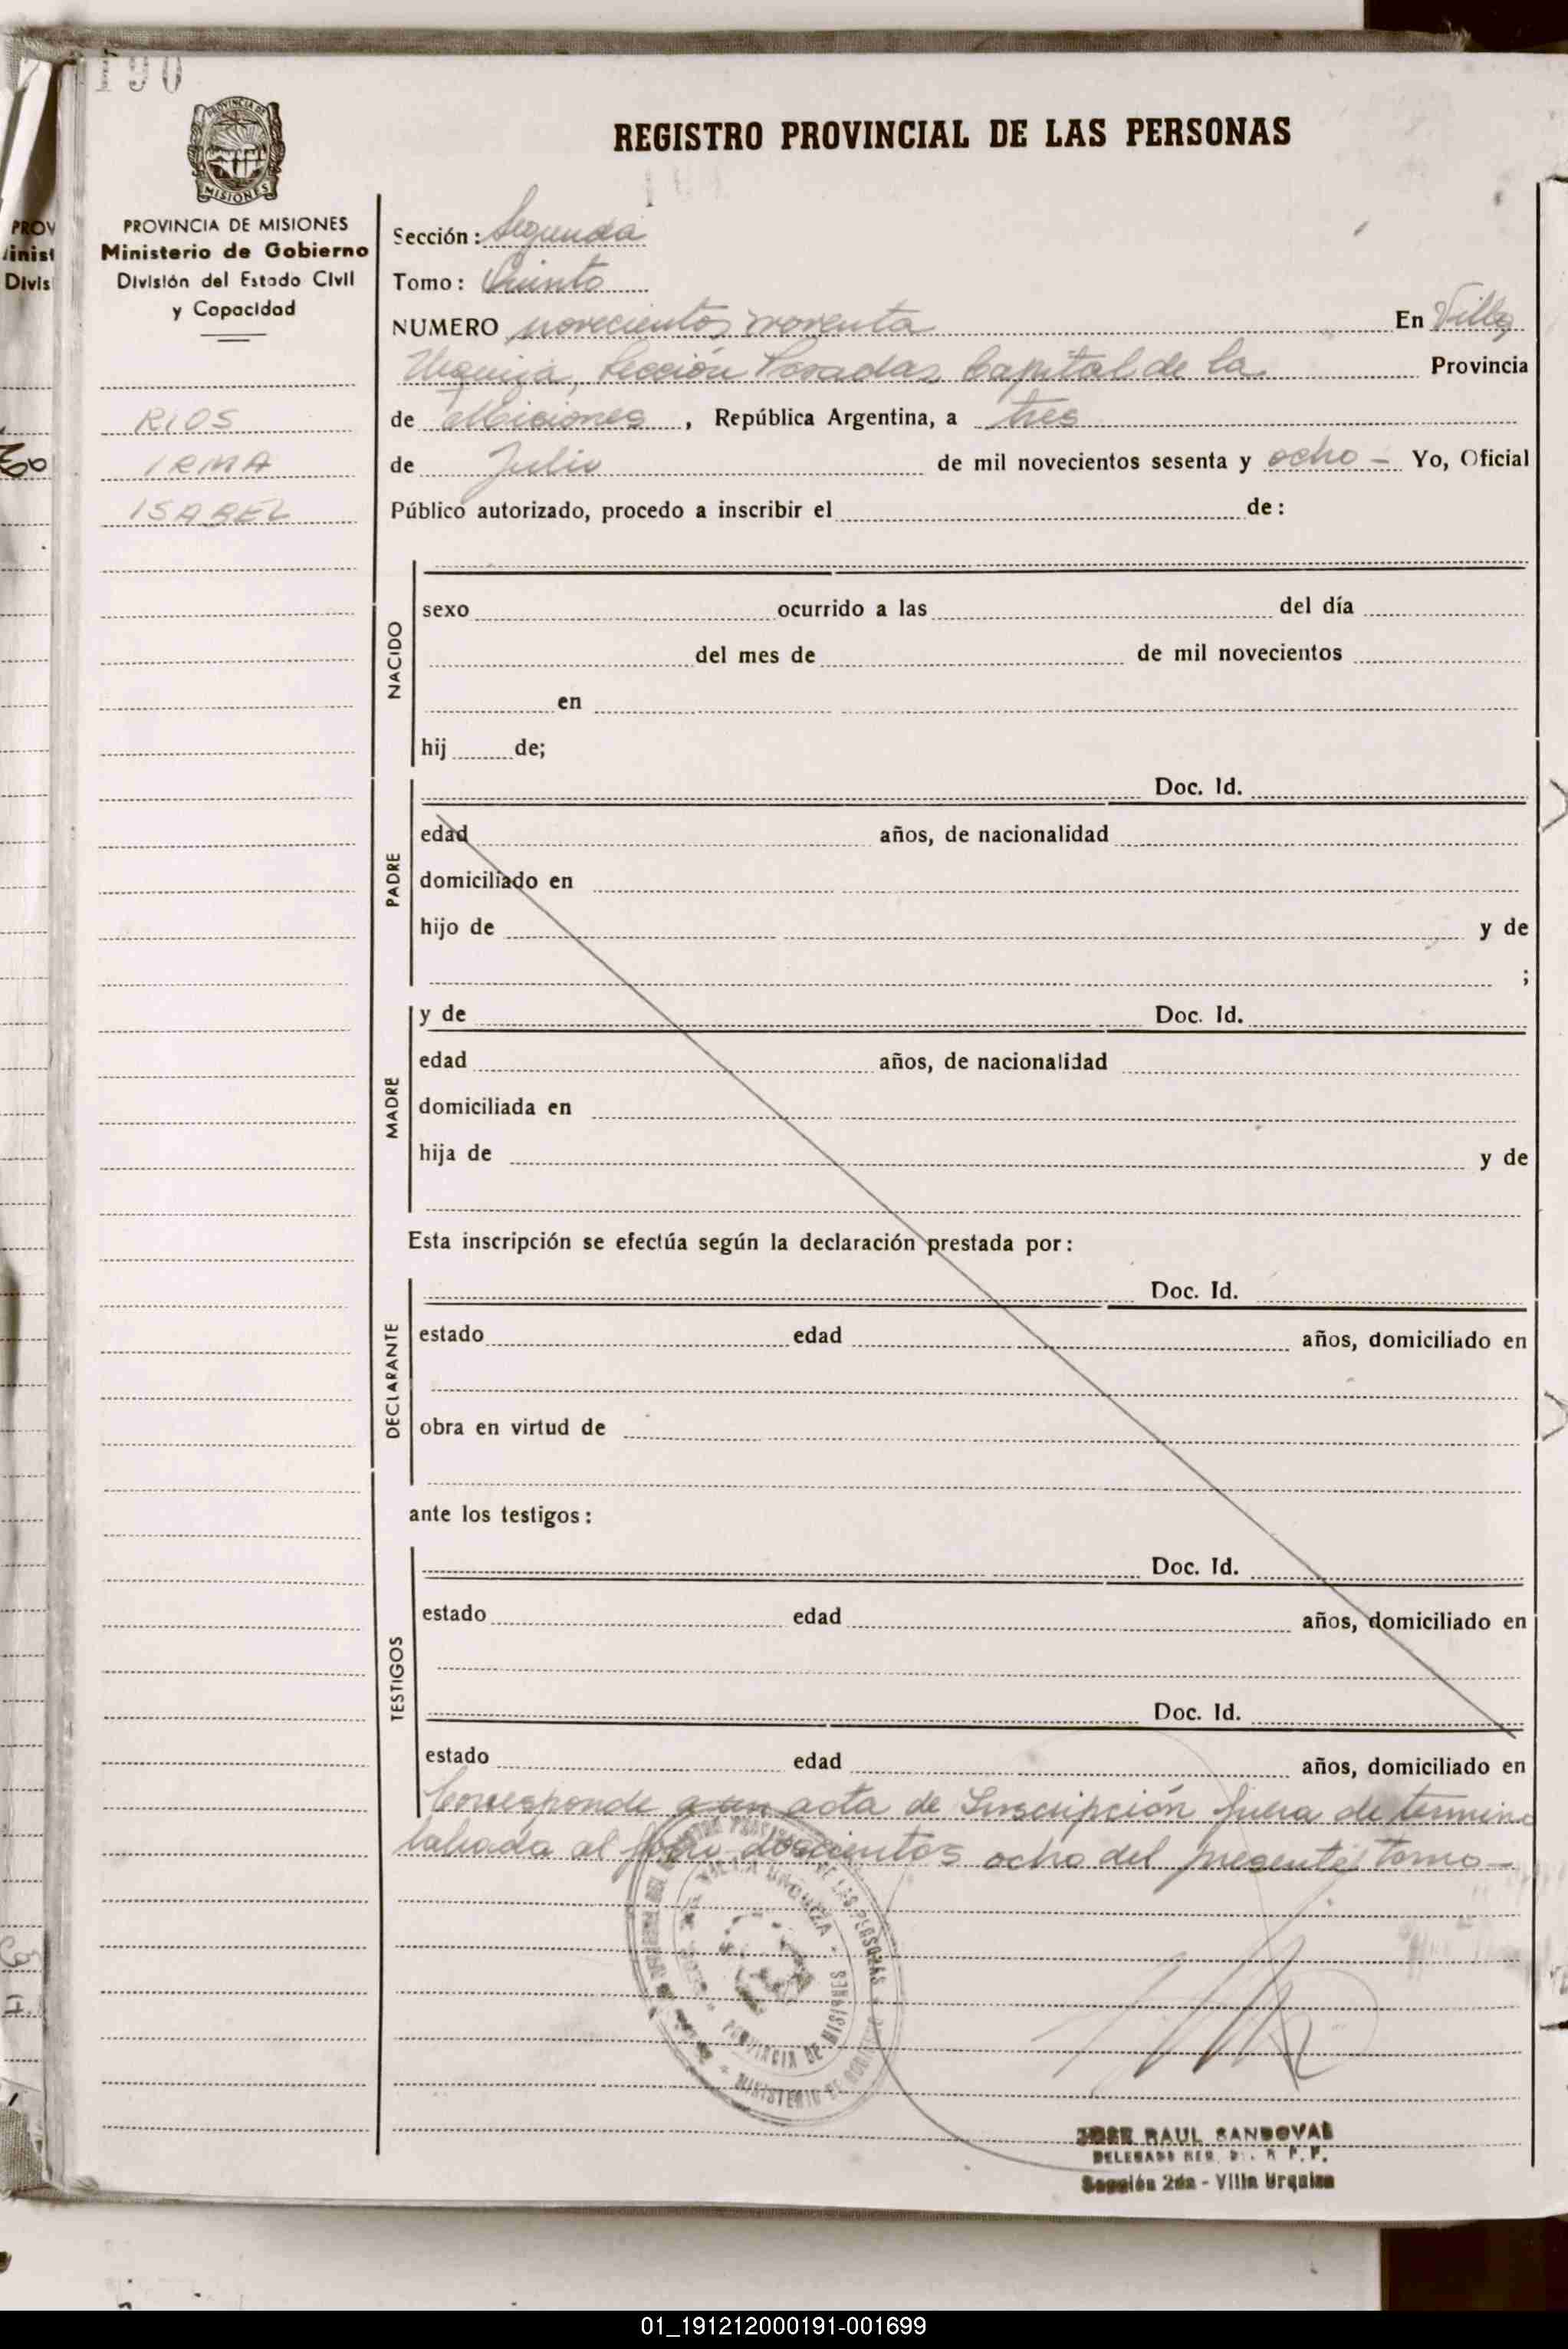 190
PROVINCIA DE
MISIONES
PROVINCIA DE MISIONES
Ministerio de Gobierno
División del Estado Civil
y Capacidad
RIOS
IRMA
ISABEL
REGISTRO PROVINCIAL DE LAS PERSONAS
Sección: Segunda
Tomo: Quinto
NUMERO novecientos noventa En Villa
Urquiza, Sección Posadas Capital de la Provincia
de Misiones, República Argentina, a tres
de Julio de mil novecientos sesenta y ocho - Yo, Oficial
Público autorizado, procedo a inscribir el de:
NACIDO
sexo ocurrido a las del día
del mes de de mil novecientos
en
hij de;
PADRE
Doc. Id.
edad años, de nacionalidad
domiciliado en
hijo de y de
;
MADRE
y de Doc. Id.
edad años, de nacionalidad
domiciliada en
hija de y de
Esta inscripción se efectúa según la declaración prestada por:
DECLARANTE
Doc. Id.
estado edad años, domiciliado en
obra en virtud de
ante los testigos:
TESTIGOS
Doc. Id.
estado edad años, domiciliado en
Doc. Id.
estado edad años, domiciliado en
Corresponde a un acta de Inscripción fuera de termino
labrada al folio doscientos ocho del presente tomo -
DE LAS PERSONAS
VILLA URQUIZA
PROVINCIA DE MISIONES
MINISTERIO DE GOBIERNO
JOSE RAUL SANDOVAL
DELEGADO
Sección 2da - Villa Urquiza
PROV
Minist
Divis
01_191212000191-001699